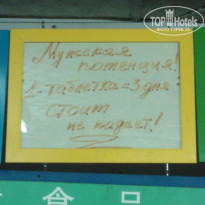 TOP Hotels
Мужская
потенция!
1-таблетка=3 дня
стоит
не падает!
食品